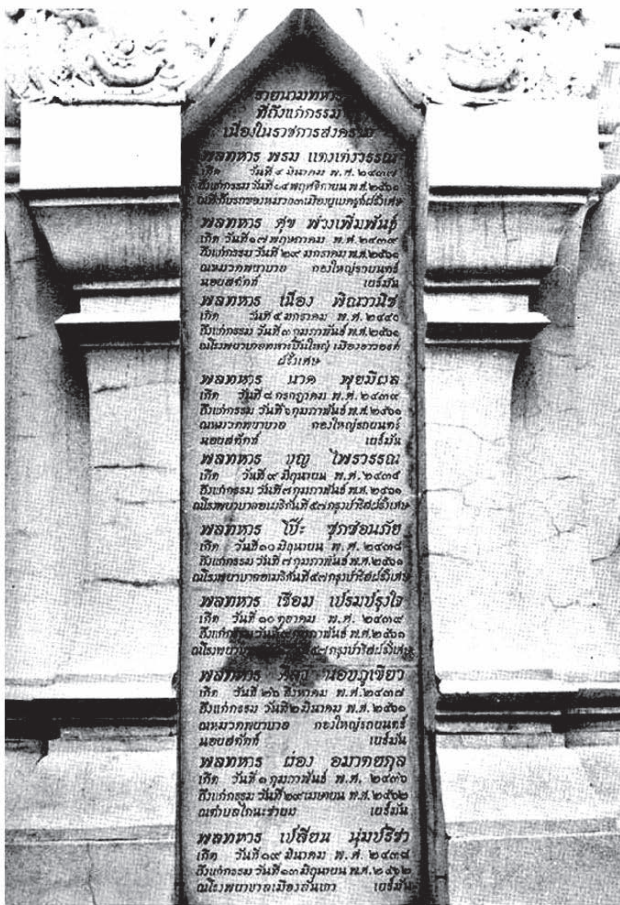 รายนามทหาร
ที่ถึงแก่กรรม
เนื่องในราชการสงคราม
พลทหาร พรม แตงเต่งวรรณ
เกิด วันที่ ๔ มีนาคม พ.ศ. ๒๔๓๗
ถึงแก่กรรม วันที่ ๑๔ พฤศจิกายน พ.ศ. ๒๔๖๑
ฝรั่งเศษ
พลทหาร ศุข พ่วงเพิ่มพันธุ์
เกิด วันที่ ๑๗ พฤษภาคม พ.ศ. ๒๔๓๙
ถึงแก่กรรม วันที่ ๒๙ มกราคม พ.ศ. ๒๔๖๑
ณหมวดพยาบาล กองใหญ่รถยนตร์
นอยสตัดท์ เยรมัน
พลทหาร เนื่อง พิณวานิช
เกิด วันที่ ๕ มกราคม พ.ศ. ๒๔๔๐
ถึงแก่กรรม วันที่ ๓ กุมภาพันธ์ พ.ศ. ๒๔๖๑
ณโรงพยาบาลทหารปืนใหญ่ เมือง
ฝรั่งเศษ
พลทหาร นาค พุยมีผล
เกิด วันที่ ๘ กรกฎาคม พ.ศ. ๒๔๓๙
ถึงแก่กรรม วันที่ ๖ กุมภาพันธ์ พ.ศ. ๒๔๖๑
ณหมวดพยาบาล กองใหญ่รถยนตร์
นอยสตัดท์ เยรมัน
พลทหาร บุญ ไพรวรรณ
เกิด วันที่ ๙ มิถุนายน พ.ศ. ๒๔๓๕
ถึงแก่กรรม วันที่ ๗ กุมภาพันธ์ พ.ศ. ๒๔๖๑
ณโรงพยาบาลอเมริกันที่ ๕๗ กรุงปารีส ฝรั่งเศษ
พลทหาร โป๊ะ ซุกซ่อนภัย
เกิด วันที่ ๑๐ มิถุนายน พ.ศ. ๒๔๓๘
ถึงแก่กรรม วันที่ ๗ กุมภาพันธ์ พ.ศ. ๒๔๖๑
ณโรงพยาบาลอเมริกันที่ ๕๗ กรุงปารีส ฝรั่งเศษ
พลทหาร เชื่อม เปรมปรุงใจ
เกิด วันที่ ๑๐ ตุลาคม พ.ศ. ๒๔๓๙
ถึงแก่กรรม กุมภาพันธ์ พ.ศ. ๒๔๖๑
๕๗ กรุงปารีส ฝรั่งเศษ
พลทหาร นอบภูเขียว
เกิด วันที่ ๒๖ สิงหาคม พ.ศ. ๒๔๓๗
ถึงแก่กรรม วันที่ ๒ มีนาคม พ.ศ. ๒๔๖๑
ณหมวดพยาบาล กองใหญ่รถยนตร์
นอยสตัดท์ เยรมัน
พลทหาร ผ่อง อมาตยกุล
เกิด วันที่ ๑ กุมภาพันธ์ พ.ศ. ๒๔๓๖
ถึงแก่กรรม วันที่ ๒๙ เมษายน พ.ศ. ๒๔๖๒
ณตำบลไกนะซายม เยรมัน
พลทหาร เปลี่ยน นุ่มปรีชา
เกิด วันที่ ๑๙ มีนาคม พ.ศ. ๒๔๓๘
ถึงแก่กรรม วันที่ ๑๓ มิถุนายน พ.ศ. ๒๔๖๒
ณโรงพยาบาลเมืองลันเดา เยรมัน